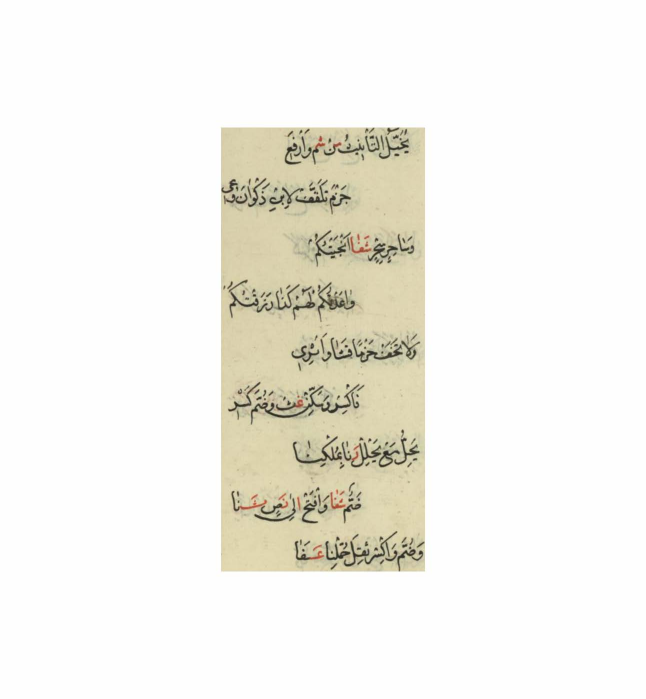 يُخَيَّلُ التَّأْنِيثُ مِنْ شِمْ وَارْفَعِ
جَزْمَ تَلَقَّفْ لِابْنِ ذَكْوَانَ وُعِي
وَسَاحِرٍ سِحْرٍ شَفَا أَنْجَيْتُكُمْ
وَاعَدْتُكُمْ لَهُمْ كَذَا رَزَقْتُكُمْ
وَلَا تَخَفْ جَزْمًا فَشَا وَإِثْرِي
فَاكْسِرْ وَسَكِّنْ غِثْ وَضُمَّ كَسْرَ
يَحِلَّ مَعْ يَحْلِلْ رَنَا بِمُلْكِنَا
ضَمَّ شَفَا وَافْتَحْ إِلَى نَصٍّ ثَنَا
وَضُمَّ وَاكْسِرْ ثِقْلَ حُمِّلْنَا عَفَا